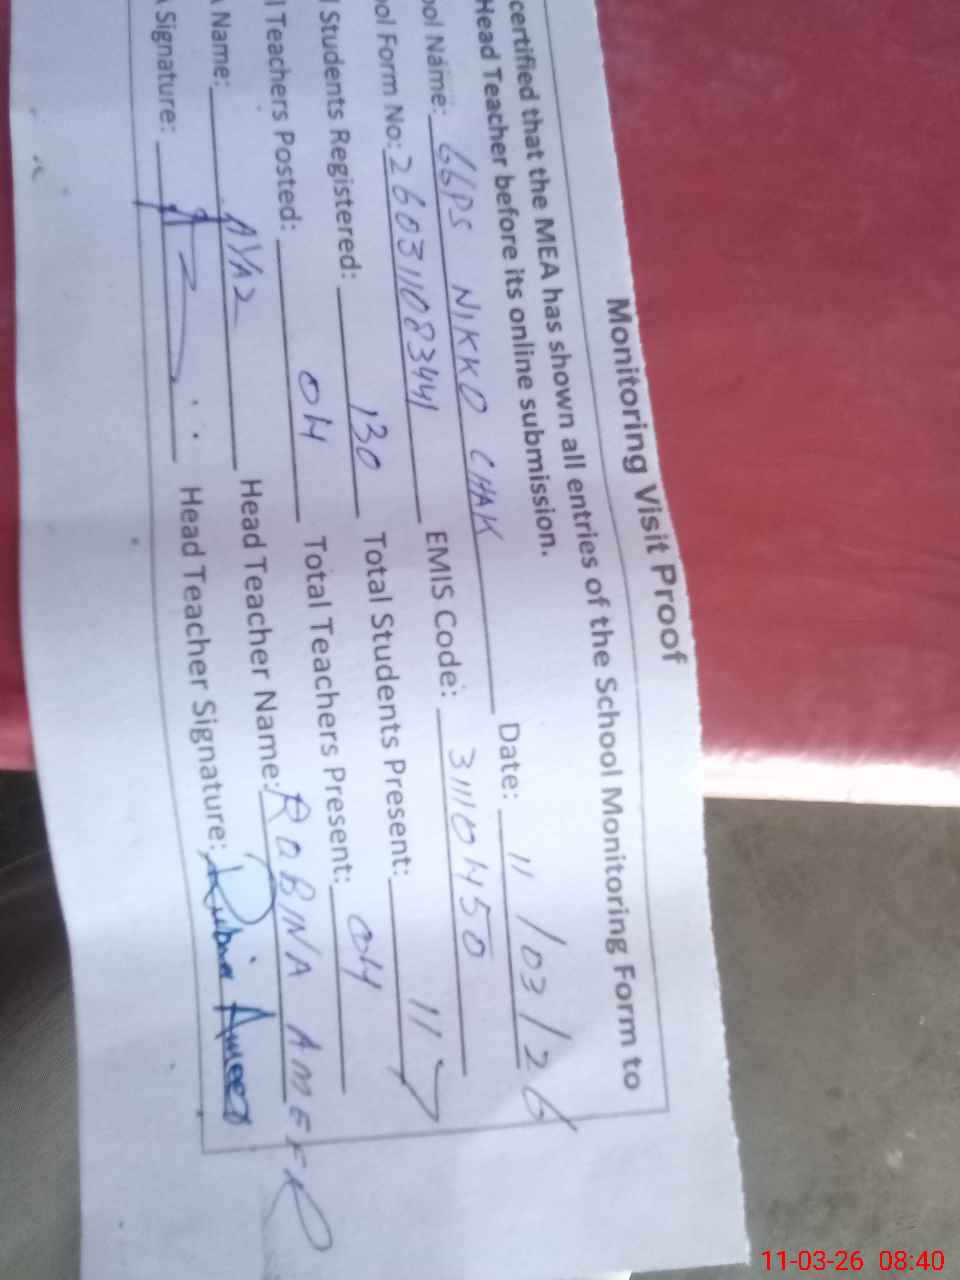 Monitoring Visit Proof
certified that the MEA has shown all entries of the School Monitoring Form to
Head Teacher before its online submission.
ool Name: GGPS NIKKO CHAK Date: 11/03/26
ool Form No: 260311083441 EMIS Code: 31110450
l Students Registered: 130 Total Students Present: 117
l Teachers Posted: 04 Total Teachers Present: 04
A Name: AYAZ Head Teacher Name: ROBINA AMEER
A Signature: Head Teacher Signature: Rubina Ameer
11-03-26 08:40